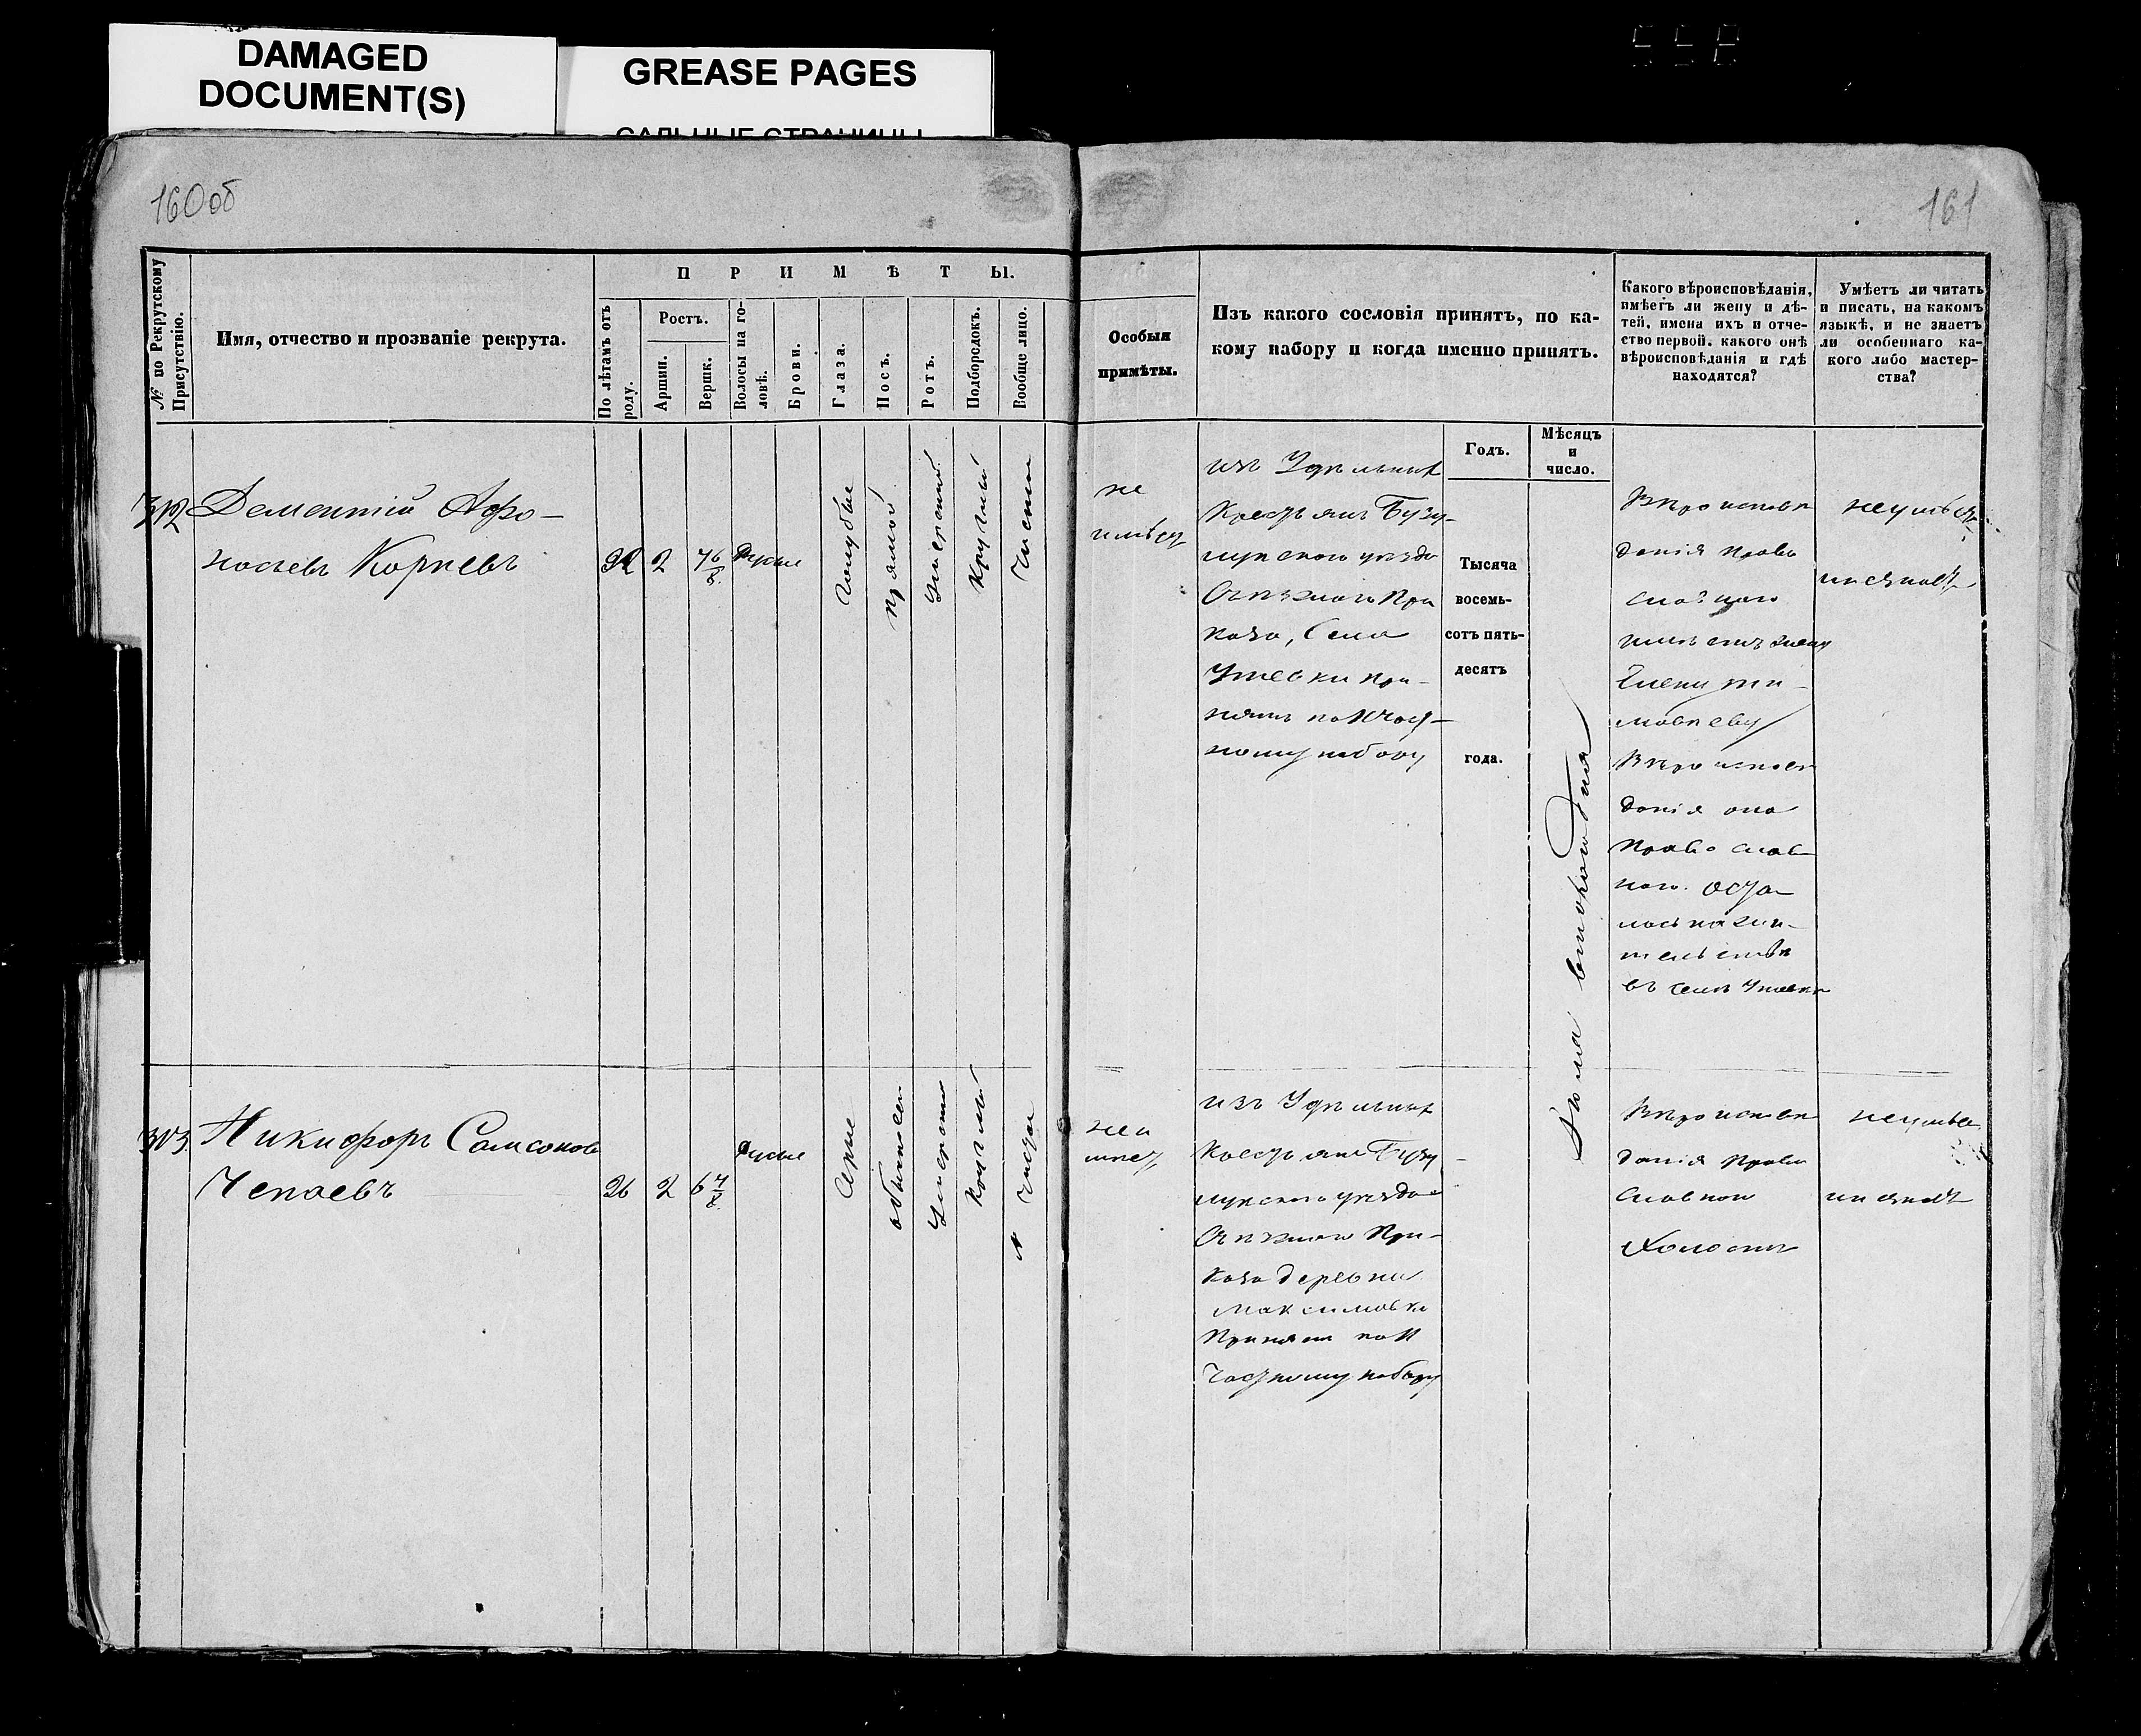 DAMAGED
DOCUMENT(S)
GREASE PAGES
САЛЬНЫЕ СТРАНИЦЫ
160об
161
№ по Рекрутскому
Присутствію.
Имя, отчество и прозваніе рекрута.
ПРИМѢТЫ.
По лѣтамъ отъ
роду.
Ростъ.
Аршин.
Вершк.
Волосы на го-
ловѣ.
Брови.
Глаза.
Носъ.
Ротъ.
Подбородокъ.
Вообще лицо.
Особыя
примѣты.
Изъ какого сословія принятъ, по ка-
кому набору и когда именно принятъ.
Годъ.
Мѣсяцъ
и
число.
Какого вѣроисповѣданія,
имѣетъ ли жену и дѣ-
тей, имена ихъ и отче-
ство первой, какого онѣ
вѣроисповѣданія и гдѣ
находятся?
Умѣетъ ли читать
и писать, на какомъ
языкѣ, и не знаетъ
ли особеннаго ка-
кого либо мастер-
ства?
312
Дементій Афо-
носьевъ Корневъ
2
Русые
голубые
прямой
умеренный
Круглый
Чистое
не
имѣетъ
изъ Удѣльныхъ
Крестьянъ Бузу-
лукскаго уѣзда
При
каза, Села
Утевки при-
нятъ по Част-
ному набору
Тысяча
восемь-
сотъ пять-
десятъ
года.
Вѣроисповѣ
данія Право
славнаго
имѣетъ жену
Елену Ти-
мофѣеву
Вѣроисповѣ
данія она
Православ
наго. Оста-
лась на жи-
тельствѣ
въ селѣ Утевкѣ
не умѣетъ
и не знаетъ
313
Никифоръ Самсоновъ
Чепаевъ
26
2
Русые
Серые
обыкновен
умеренный
Круглый
Чистое
не и
мѣетъ
изъ Удѣльныхъ
Крестьянъ Бузу-
лукскаго уѣзда
При-
каза деревни
Максимовки
Принятъ по
Частному набору
Вѣроисповѣ
данія Право
славнаго
Холостъ
не умѣетъ
и не знаетъ